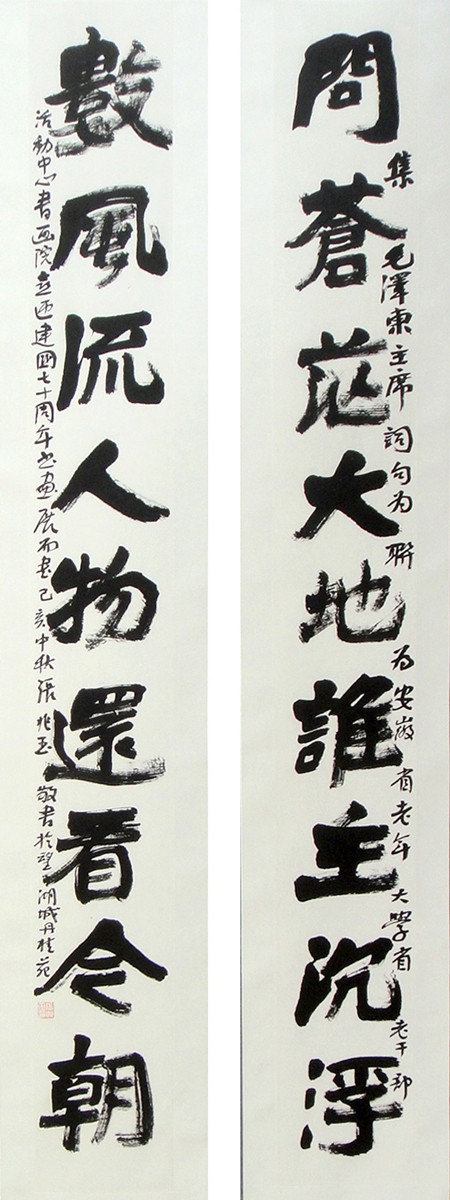 問蒼茫大地誰主沉浮
集毛澤東主席詞句为聯为安徽省老年大學省老干部
數風流人物還看今朝
活動中心書画院迎建國七十周年书画展而書己亥中秋張兆玉敬書於望湖城丹桂苑